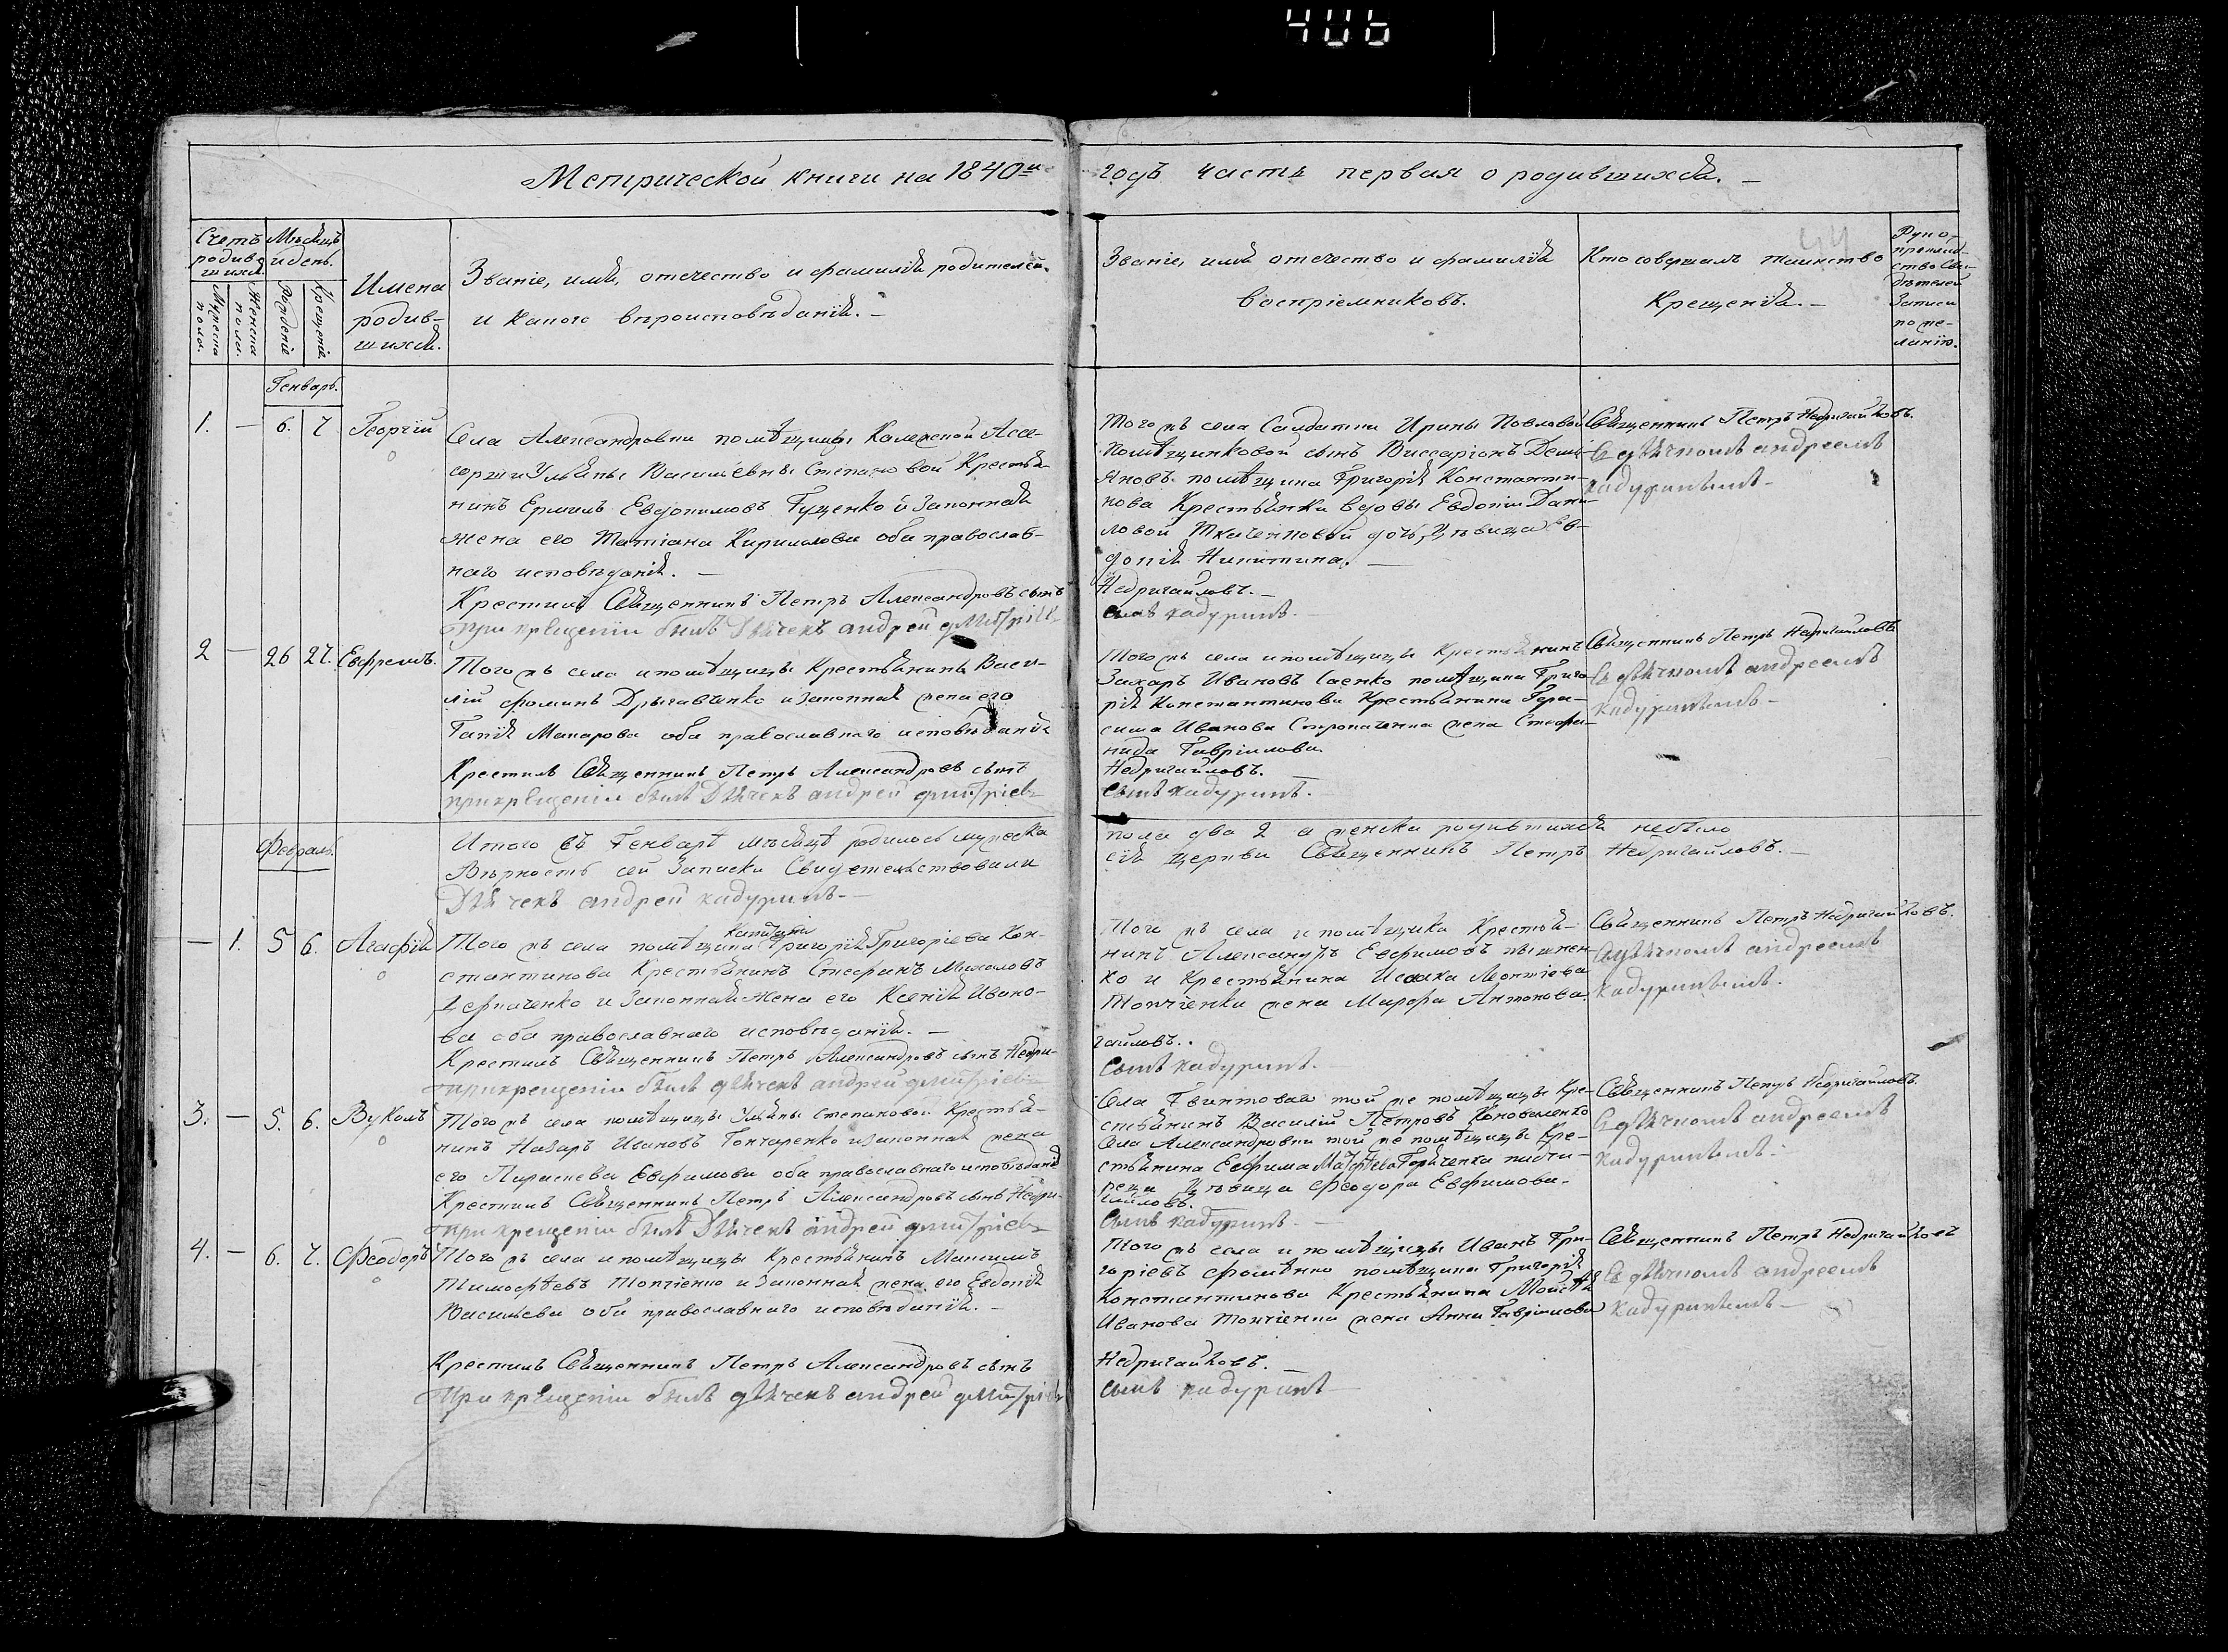 406
Метрической книги на 1840й годъ часть первая о родившихся. —
44
Счетъ родившихся
Мѣсяцъ и день.
Мужеска пола.
Женска пола.
Рожденіе
Крещеніе
Имена
родив-
шихся.
Званіе, имя, отечество и фамилія родителей,
и какого вѣроисповѣданія. —
Званіе, имя отечество и фамилія
воспріемниковъ.
Кто совершалъ таинство
Крещенія. —
Руко-
прикład-
ство Сви-
дѣтелей
Записи
по же-
ланію.
Генварь.
1. — 6. 7 Георгій
Села Александровки помѣщицы Колежской Асе-
сорши Ульяны Василіевны Степановой Крестья-
нинъ Ермилъ Евдокимовъ Гуценко и Законная
жена его Татіана Кирилова оба православ-
наго исповѣданія. —
Крестилъ Священникъ Петръ Александровъ сынъ
при крещеніи былъ Дьячекъ андрей дмитріевъ
Того жъ села Салдатки Ирины Павловой
сынъ Виссаріонъ Демі-
яновъ. помѣщика Григорія Константи-
нова Крестьянки вдовы Евдокіи Дани-
ловой Ткаченковой дочь, дѣвица Ев-
докія Никитина. —
Недригайловъ. —
сынъ кадуринъ. —
Священникъ Петръ Недригайловъ.
Съ дьячкомъ андреемъ
кадуринымъ —
2 — 26 27. Евфремъ.
Того жъ села и помѣщицы Крестьянинъ Васи-
лій Фоминъ и Законная жена его
Макарова оба православнаго исповѣданія
Крестилъ Священникъ Петръ Александровъ сынъ
при крещеніи былъ Дьячекъ андрей дмитріевъ
Того жъ села и помѣщицы Крестьянинъ
Захаръ Ивановъ Саенко помѣщика Григо-
рія Константинова Крестьянина Гера-
сима Иванова жена Стефа-
нида Гавріилова
Недригайловъ. —
сынъ кадуринъ. —
Священникъ Петръ Недригайловъ
Съ дьячкомъ андреемъ
кадуринымъ —
Итого въ Генварѣ мѣсяцѣ родилось мужеска
пола два 2 а женска родившихся небыло
Вѣрность сей Записки Свидетельствовали
сія церкви Священникъ Петръ Недригайловъ. —
Дьячекъ андрей кадуринъ. —
Февраль.
— 1. 5 6. Агафія
Того жъ села помѣщика капитана Григорія Григоріева Кон-
стантинова Крестьянинъ Стефанъ
и Законная жена его Ксенія Ивано-
ва оба православнаго исповѣданія. —
Крестилъ Священникъ Петръ Александровъ сынъ Недри-
при крещеніи былъ дьячекъ андрей дмитріевъ
Того жъ села и помѣщика Крестья-
нинъ Александръ Евфимовъ
и Крестьянина Исаака Леонтіева
Топчіенка жена Марфа Антонова
гайловъ.
сынъ кадуринъ.
Священникъ Петръ Недригайловъ.
Съ дьячкомъ андреемъ
кадуринымъ.
3. — 5. 6. Вуколъ
Того жъ села помѣщицы Ульяны Степановой Крестья-
нинъ Назаръ Ивановъ Гончаренко и Законная жена
его Параскева Евфимова оба православнаго исповѣданія
Крестилъ Священникъ Петръ Александровъ сынъ Недри-
при крещеніи былъ Дьячекъ андрей дмитріевъ
Села Гвинтоваго той же помѣщицы Кре-
стьянинъ Василій Петровъ Коноваленко
Села Александровки той же помѣщицы Кре-
стьянина Евфима
дѣвица Феодора Евфимова.
гайловъ.
сынъ кадуринъ. —
Священникъ Петръ Недригайловъ.
Съ дьячкомъ андреемъ
кадуринымъ. —
4. — 6. 7. Феодоръ
Того жъ села и помѣщицы Крестьянинъ Максимъ
Тимофѣевъ Топчіенко и Законная жена его Евдокія
Васильева оба православнаго исповѣданія. —
Крестилъ Священникъ Петръ Александровъ сынъ
при крещеніи былъ дьячекъ андрей дмитріевъ
Того жъ села и помѣщицы Иванъ Гри-
горіевъ Фоменко помѣщика Григорія
Константинова Крестьянина Моисея
Иванова Топчіенка жена Анна Гавріилова
Недригайловъ. —
сынъ кадуринъ —
Священникъ Петръ Недригайловъ
Съ дьячкомъ андреемъ
кадуринымъ —